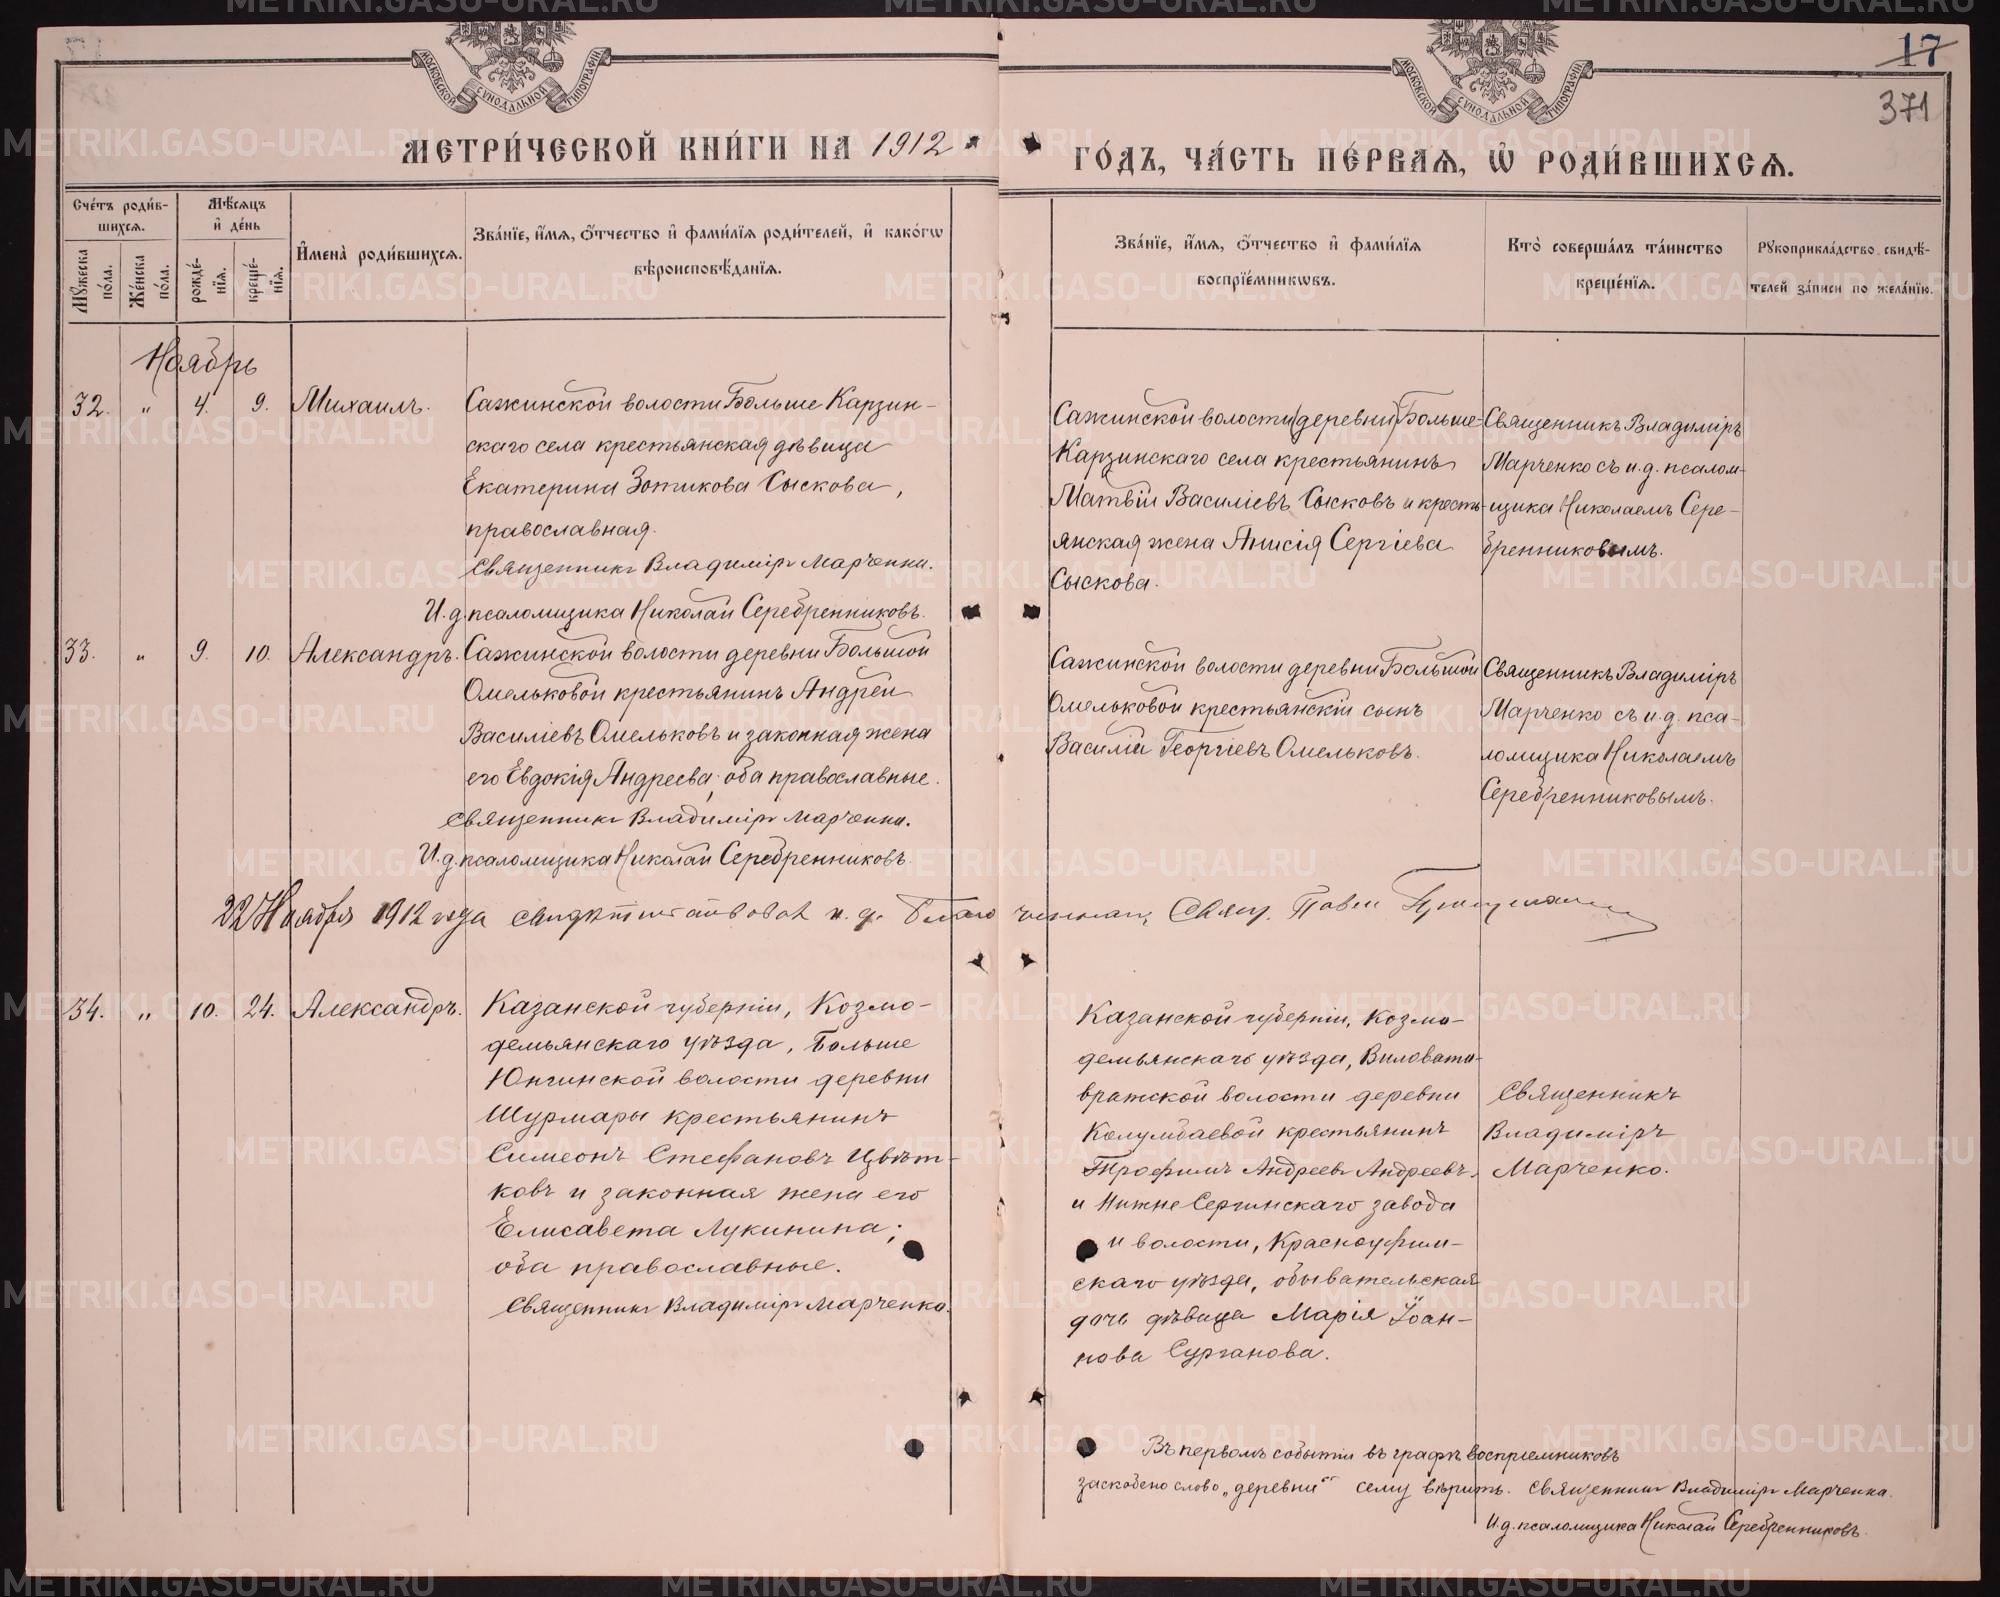 МОСКОВСКОЙ СѴНОДАЛЬНОЙ ТИПОГРАФІИ
МОСКОВСКОЙ СѴНОДАЛЬНОЙ ТИПОГРАФІИ
17
371
МЕТРИ́ЧЕСКОЙ КНИ́ГИ НА 1912
ГО́ДЪ, ЧА́СТЬ ПЕ́РВАѦ, Ѡ РОДИ́ВШИХСѦ.
Сче́тъ роди́в-
шихсѧ.
Мѣ́сѧцъ
и҆ де́нь
Мꙋ́жеска
по́ла.
Же́нска
по́ла.
рожде́-
нїѧ.
креще́-
нїѧ.
И҆мена̀ роди́вшихсѧ.
Зва́нїе, и҆́мѧ, ѻ҆́тчество и҆ фами́лїѧ роди́телей, и҆ како́гѡ
вѣроисповѣ́данїѧ.
Зва́нїе, и҆́мѧ, ѻ҆́тчество и҆ фами́лїѧ
воспрїе́мникѡвъ.
Кто̀ соверша́лъ та́инство
креще́нїѧ.
Рꙋкоприкла́дство свидѣ́-
телей за́писи по жела́нїю.
Ноябрь
32. " 4. 9. Михаилъ.
Сажинской волости Больше Карзин-
скаго села крестьянская дѣвица
Екатерина Зотикова Сыскова,
православная.
Священникъ Владиміръ Марченко.
И.д. псаломщика Николай Серебренниковъ.
Сажинской волости (деревни) Больше-
Карзинскаго села крестьянинъ
Матвій Василіевъ Сысковъ и кресть-
янская жена Анисія Сергіева
Сыскова.
Священникъ Владиміръ
Марченко съ и.д. псалом-
щика Николаемъ Сере-
бренниковымъ.
33. " 9. 10. Александръ.
Сажинской волости деревни Большой
Омельковой крестьянинъ Андрей
Василіевъ Омельковъ и законная жена
его Евдокія Андреева, оба православные.
Священникъ Владиміръ Марченко.
И.д. псаломщика Николай Серебренниковъ.
Сажинской волости деревни Большой
Омельковой крестьянскій сынъ
Василій Георгіевъ Омельковъ.
Священникъ Владиміръ
Марченко съ и.д. пса-
ломщика Николаемъ
Серебренниковымъ.
22 Ноября 1912 года свидѣтельствовал и. д. Благочиннаго, Свящ. Павел
34. " 10. 24. Александръ.
Казанской губерніи, Козмо-
демьянскаго уѣзда, Больше
Юнгинской волости деревни
Шурмары крестьянинъ
Симеонъ Стефановъ Цвѣт-
ковъ и законная жена его
Елисавета Лукинина;
оба православные.
Священникъ Владиміръ Марченко.
Казанской губерніи, Козмо-
демьянскаго уѣзда, Виловато-
вратской волости деревни
Колумбаевой крестьянинъ
Трофимъ Андреевъ Андреевъ,
и Нижне Сергинскаго завода
и волости, Красноуфим-
скаго уѣзда, обывательская
дочь дѣвица Марія Іоан-
нова Сурганова.
Священникъ
Владиміръ
Марченко.
Въ первомъ событіи въ графѣ воспріемниковъ
заскоблено слово „деревни" сему вѣрить. Священникъ Владиміръ Марченко.
И.д. псаломщика Николай Серебренниковъ.